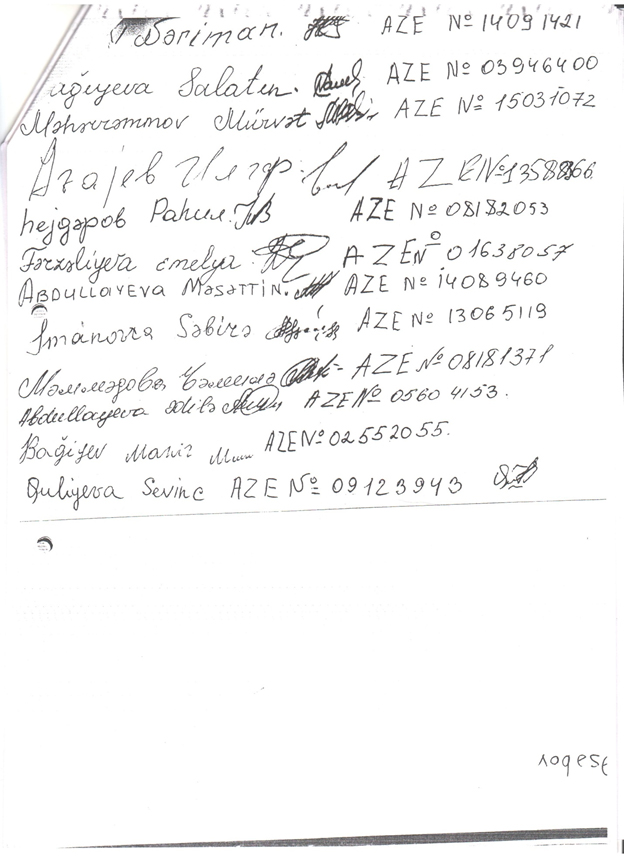 Nəriman. AZE № 14091421
ağıyeva Salatın. AZE № 03946400
Məhərrəmov Mürvət AZE № 15031072
Агајев Илгар. AZE №
Һејдәров Рафил. AZE № 08182053
Fərzəliyeva AZE № 01638057
ABDULLAYEVA MƏSƏTTİN. AZE № 14089460
İmanova Səbirə AZE № 13065119
Мәммәдова AZE № 08181371
Abdullayeva Ədilə AZE № 05604153.
Bağiyev AZE № 02552055.
Quliyeva Sevinc AZE № 09123943